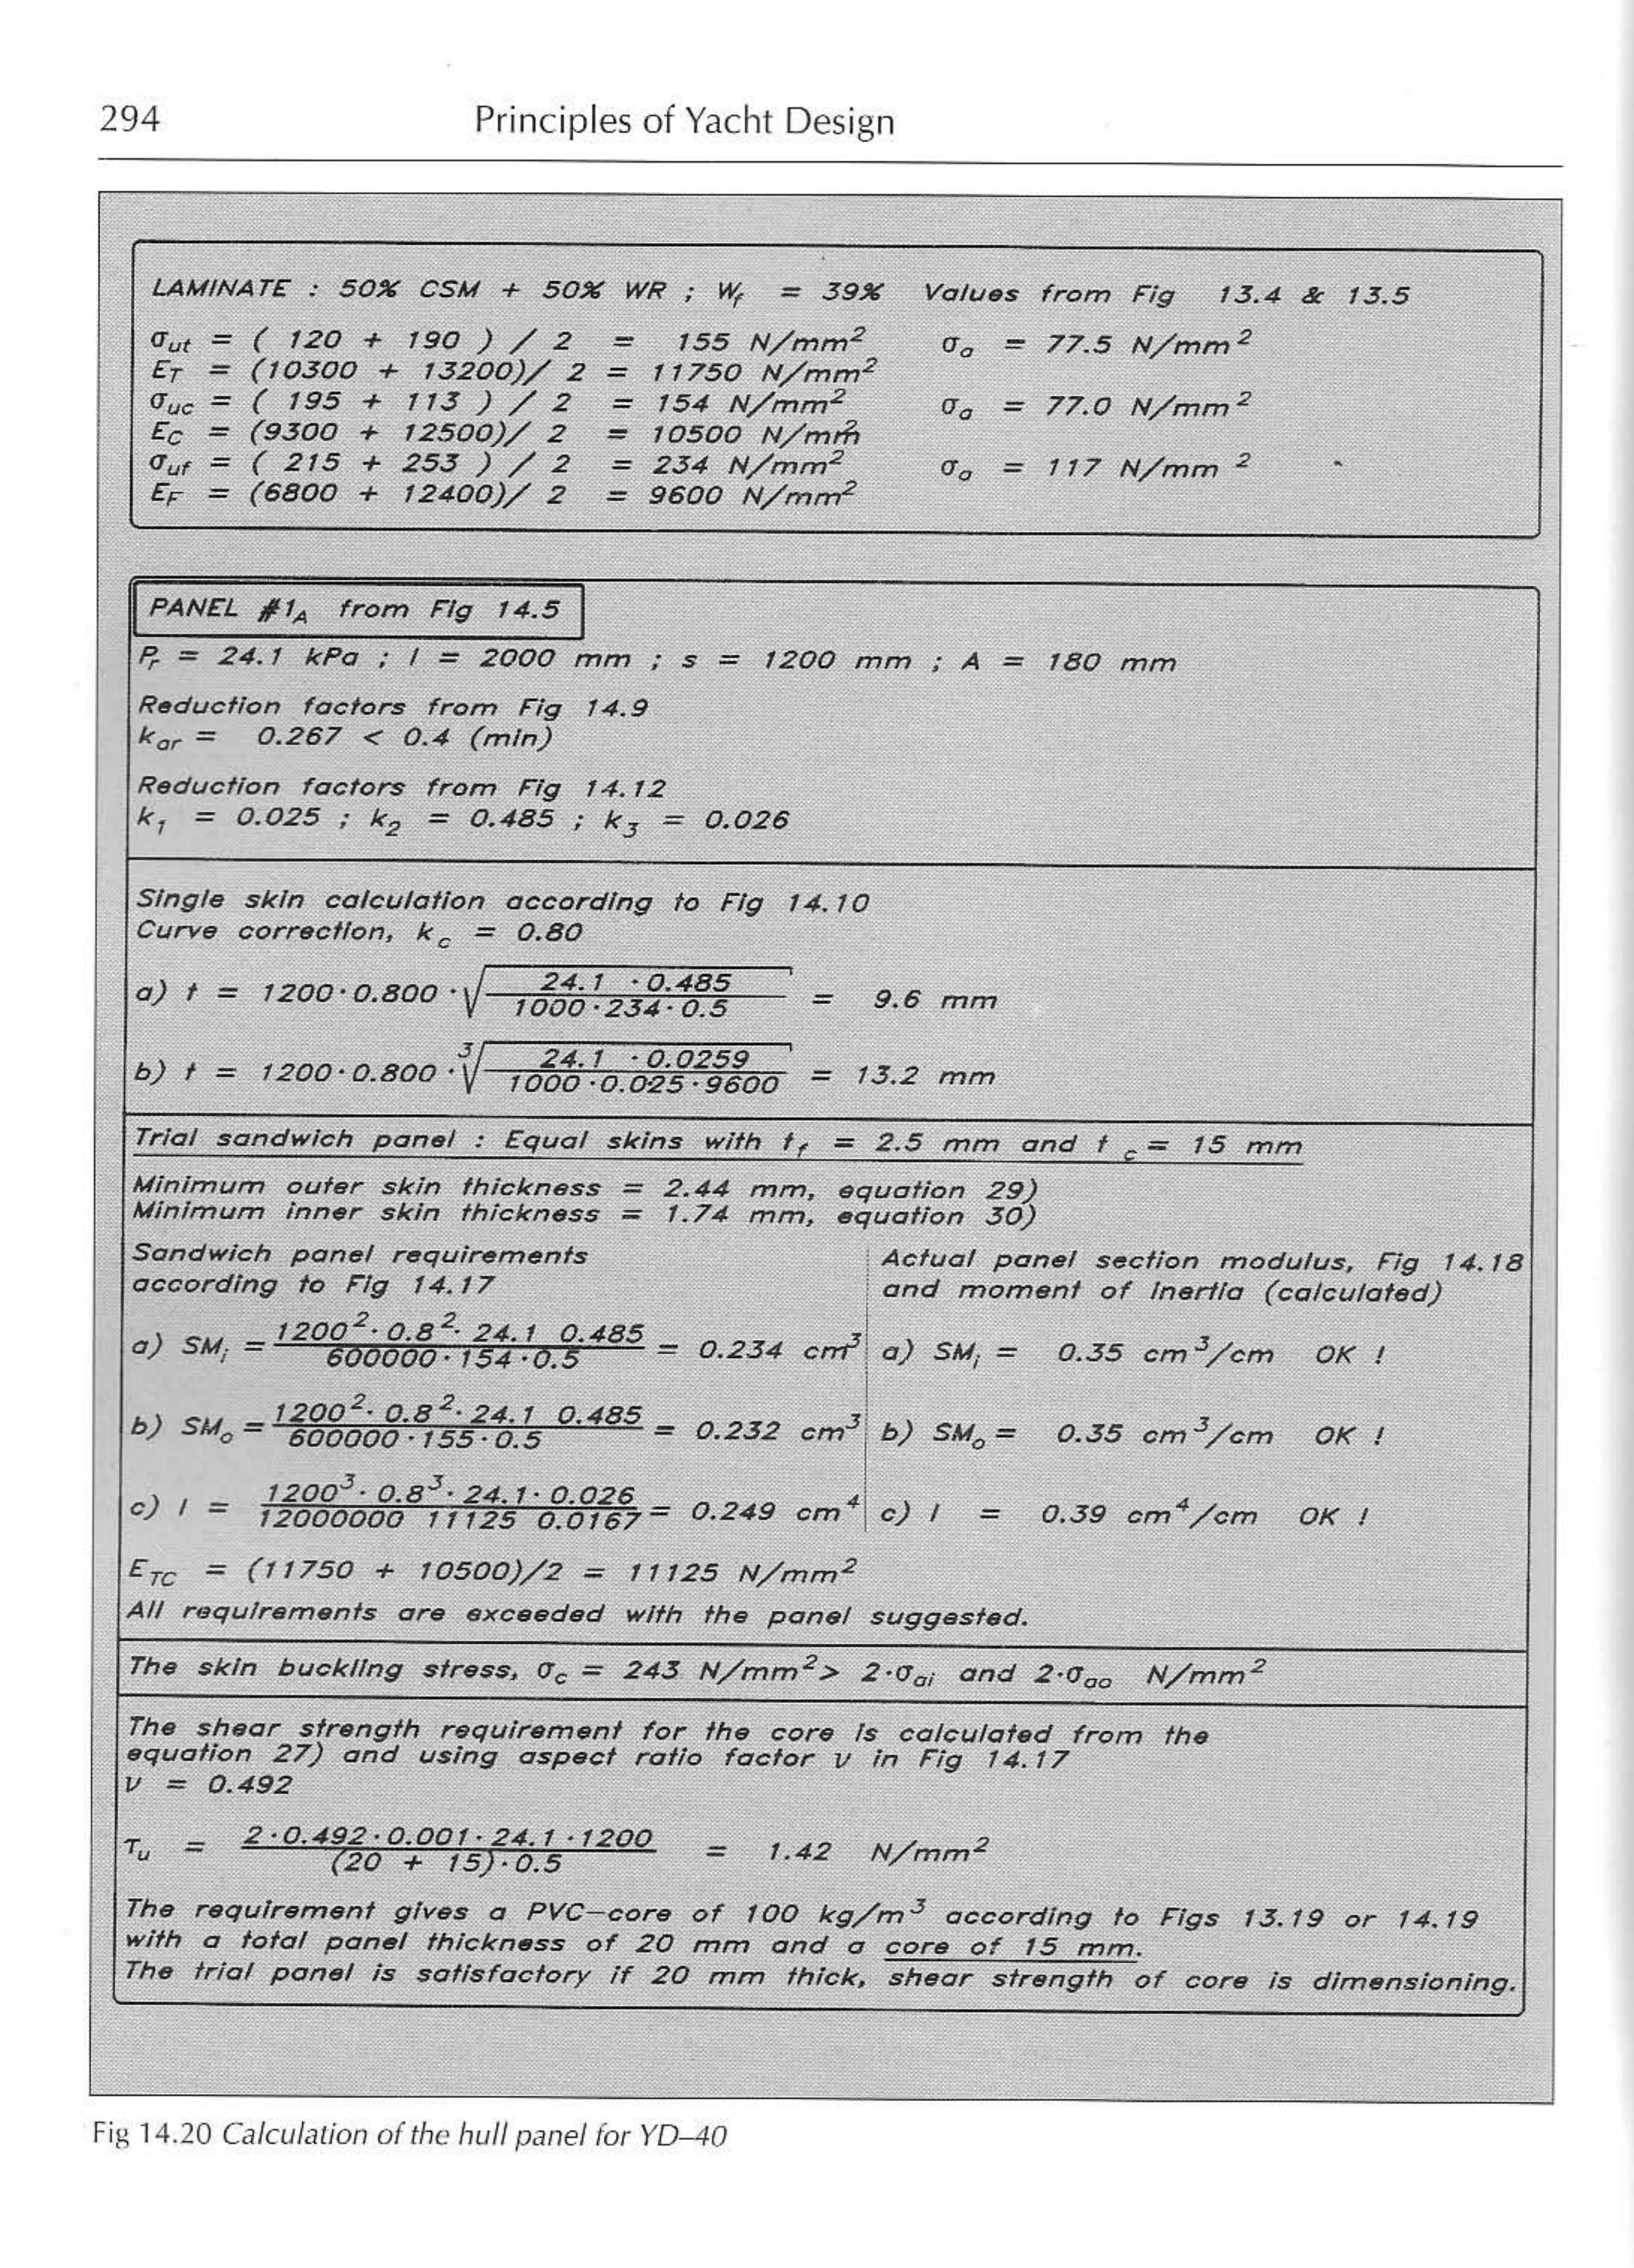 294 Principles of Yacht Design
LAMINATE : 50% CSM + 50% WR ; Wf = 39% Values from Fig 13.4 & 13.5
σut = ( 120 + 190 ) / 2 = 155 N/mm² σa = 77.5 N/mm²
ET = (10300 + 13200)/ 2 = 11750 N/mm²
σuc = ( 195 + 113 ) / 2 = 154 N/mm² σa = 77.0 N/mm²
EC = (9300 + 12500)/ 2 = 10500 N/mm²
σuf = ( 215 + 253 ) / 2 = 234 N/mm² σa = 117 N/mm²
EF = (6800 + 12400)/ 2 = 9600 N/mm²
PANEL #1A from Fig 14.5
Pr = 24.1 kPa ; l = 2000 mm ; s = 1200 mm ; A = 180 mm
Reduction factors from Fig 14.9
kar = 0.267 < 0.4 (min)
Reduction factors from Fig 14.12
k1 = 0.025 ; k2 = 0.485 ; k3 = 0.026
Single skin calculation according to Fig 14.10
Curve correction, kc = 0.80
a) t = 1200·0.800·√(24.1 ·0.485 / 1000·234·0.5) = 9.6 mm
b) t = 1200·0.800·³√(24.1 ·0.0259 / 1000·0.025·9600) = 13.2 mm
Trial sandwich panel : Equal skins with tf = 2.5 mm and tc = 15 mm
Minimum outer skin thickness = 2.44 mm, equation 29)
Minimum inner skin thickness = 1.74 mm, equation 30)
Sandwich panel requirements
according to Fig 14.17
Actual panel section modulus, Fig 14.18
and moment of inertia (calculated)
a) SMi = 1200²·0.8²·24.1 0.485 / 600000·154·0.5 = 0.234 cm³ a) SMi = 0.35 cm³/cm OK !
b) SMo = 1200²·0.8²·24.1 0.485 / 600000·155·0.5 = 0.232 cm³ b) SMo = 0.35 cm³/cm OK !
c) I = 1200³·0.8³·24.1·0.026 / 12000000 11125 0.0167 = 0.249 cm⁴ c) I = 0.39 cm⁴/cm OK !
ETC = (11750 + 10500)/2 = 11125 N/mm²
All requirements are exceeded with the panel suggested.
The skin buckling stress, σc = 243 N/mm²> 2·σai and 2·σao N/mm²
The shear strength requirement for the core is calculated from the
equation 27) and using aspect ratio factor ν in Fig 14.17
ν = 0.492
τu = 2·0.492·0.001·24.1·1200 / (20 + 15)·0.5 = 1.42 N/mm²
The requirement gives a PVC-core of 100 kg/m³ according to Figs 13.19 or 14.19
with a total panel thickness of 20 mm and a core of 15 mm.
The trial panel is satisfactory if 20 mm thick, shear strength of core is dimensioning.
Fig 14.20 Calculation of the hull panel for YD–40